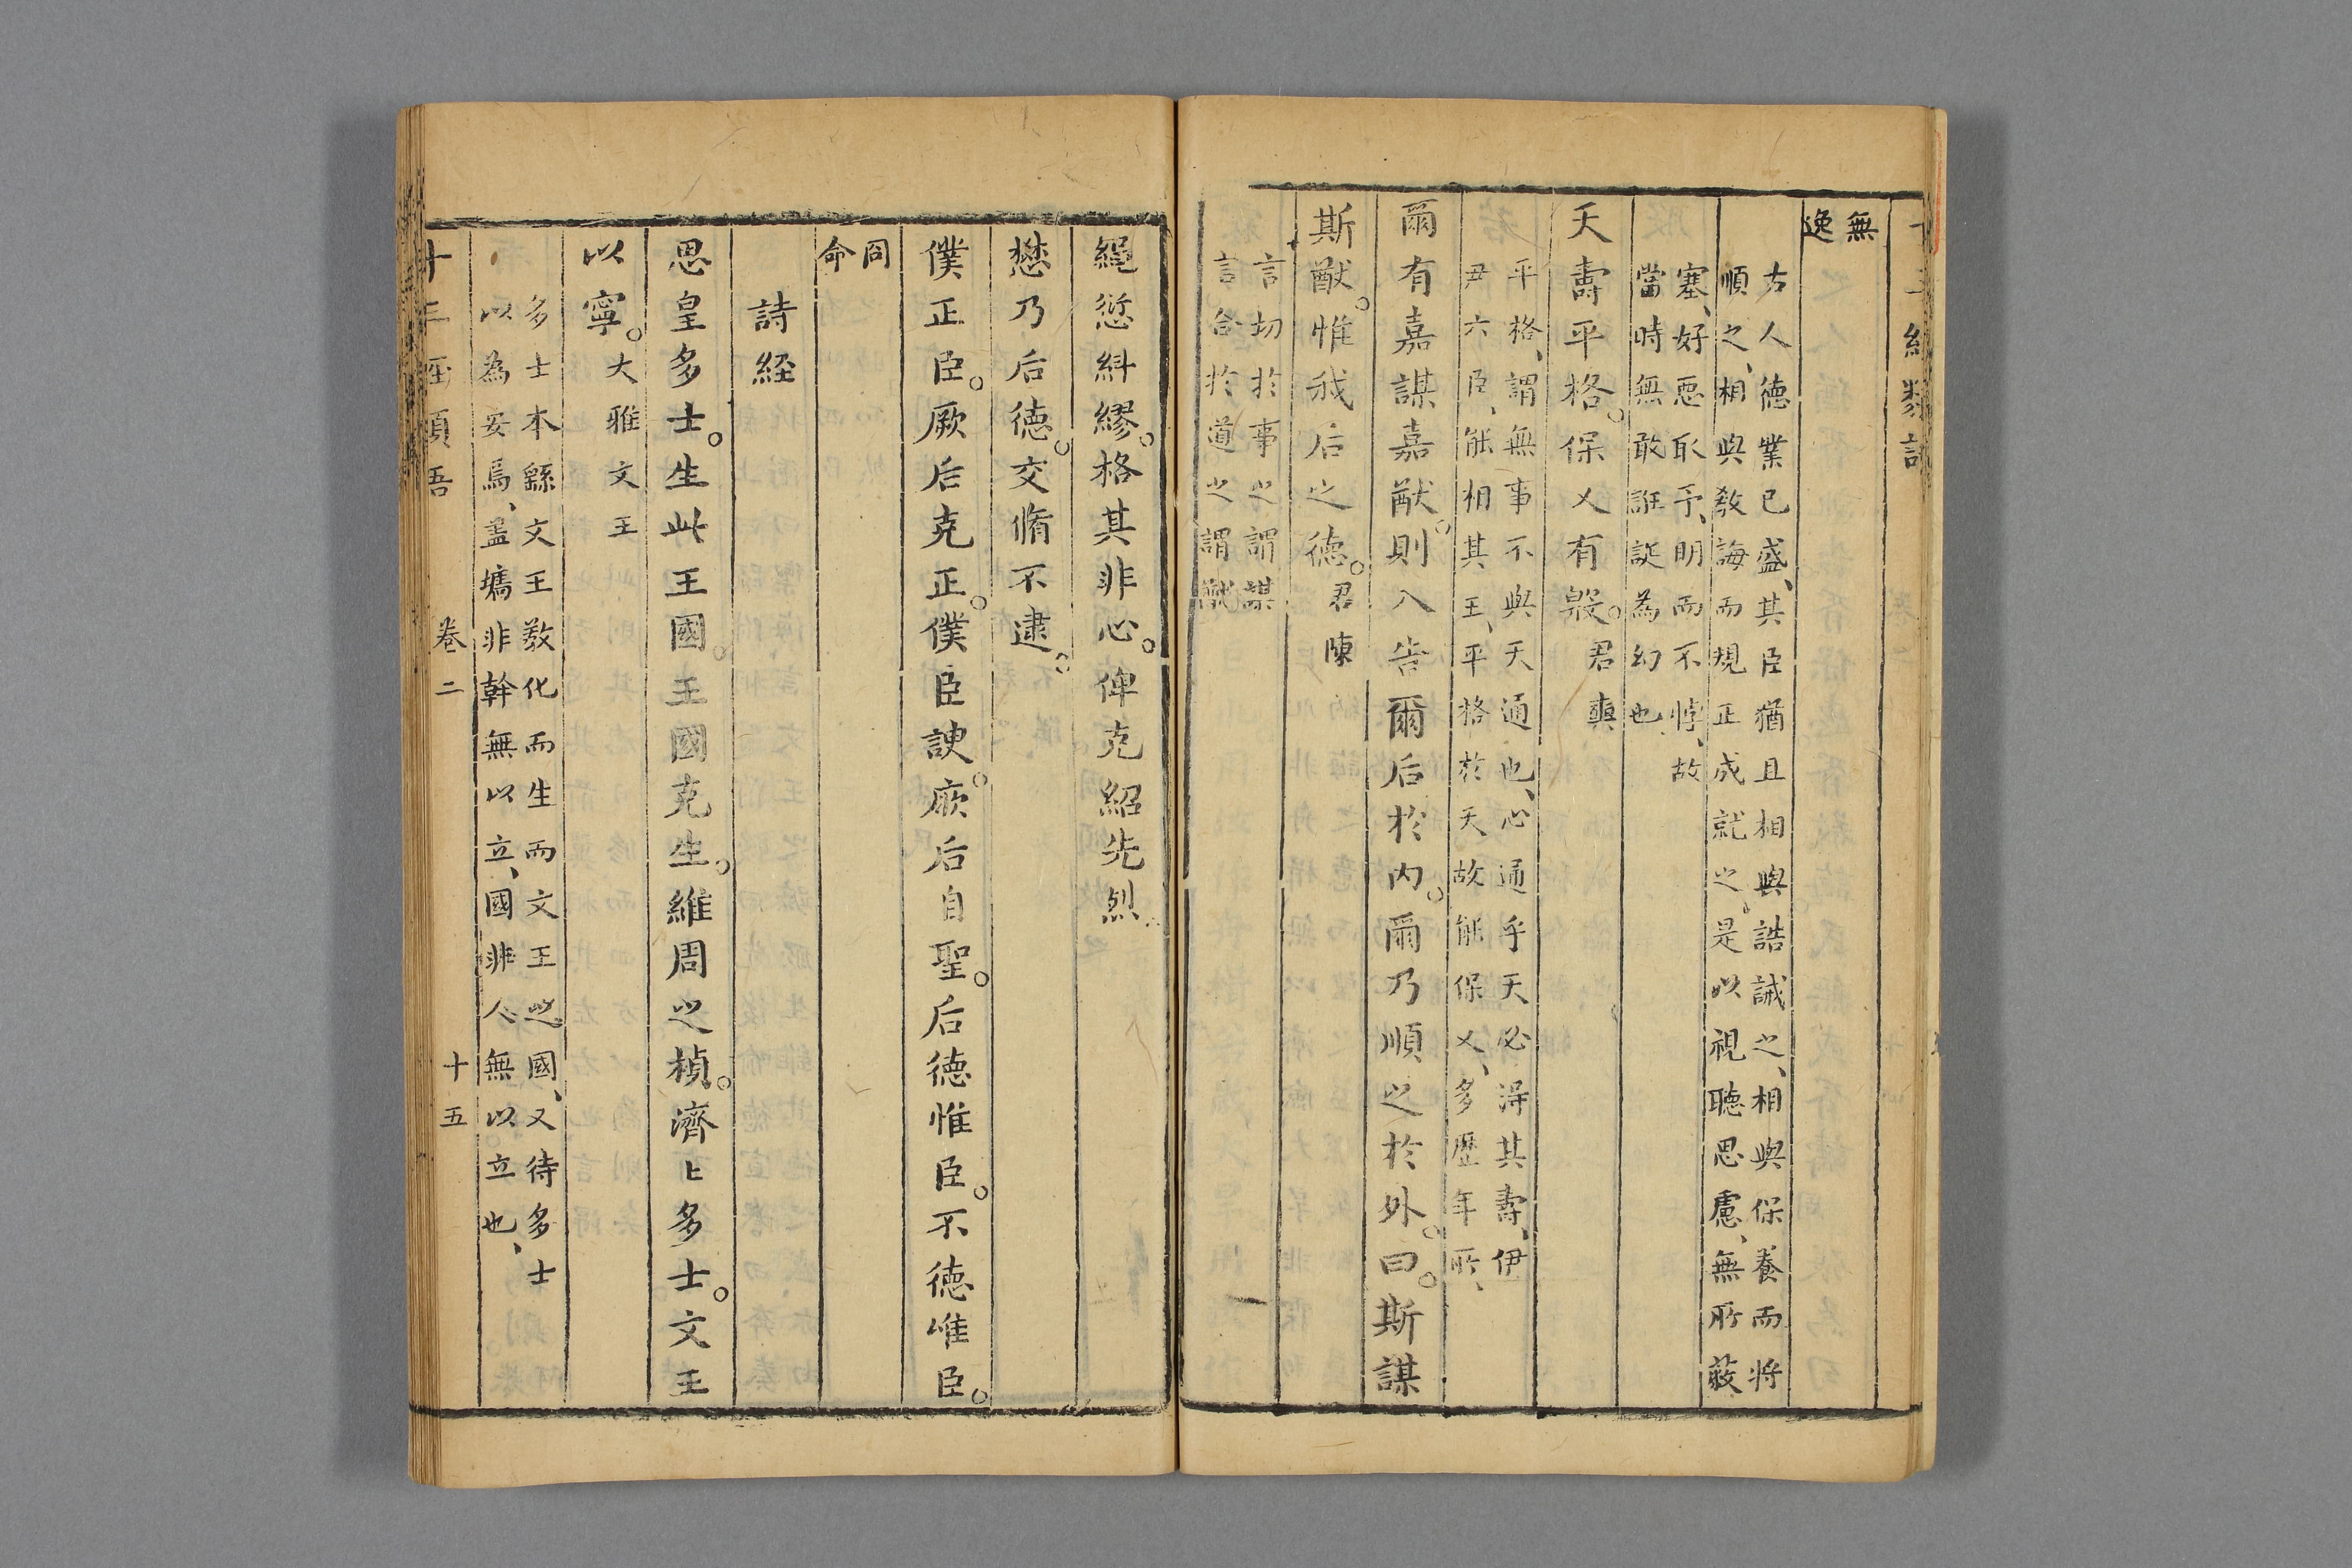 無
逸
古人徳業已盛、其臣猶且相與誥誡之、相與保養而將
順之、相與敎誨而規正成就之、是以視聽思慮、無所蔽
塞、好惡取予、明而不悖、故
當時無敢誑誕為幻也
天壽平格。保乂有殷。君奭
平格、謂無事不與天通也、心通乎天必淂其壽、伊
尹六臣、能相其王、平格於天、故能保乂、多歷年所、
爾有嘉謀嘉猷。則入告爾后於内。爾乃順之於外。曰。斯謀
斯猷。惟我后之德。君陳
言切於事之謂謀
言合於道之謂猷
繩愆糾繆。格其非心。俾克紹先烈
懋乃后德。交脩不逮。
僕正臣。厥后克正。僕臣諛。厥后自聖。后德惟臣。不德唯臣。
冏
命
詩経
思皇多士。生此王國。王國克生。維周之楨。濟〻多士。文王
以寧。大雅文王
多士本繇文王敎化而生而文王之國、又待多士
以為安焉、盖墉非幹無以立、國非人無以立也、
卷二 十五